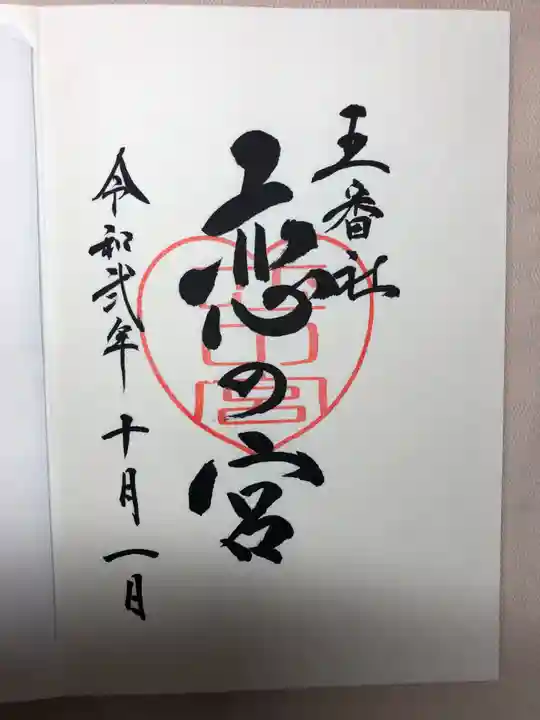 王番社
恋の宮
令和弐年 十月一日